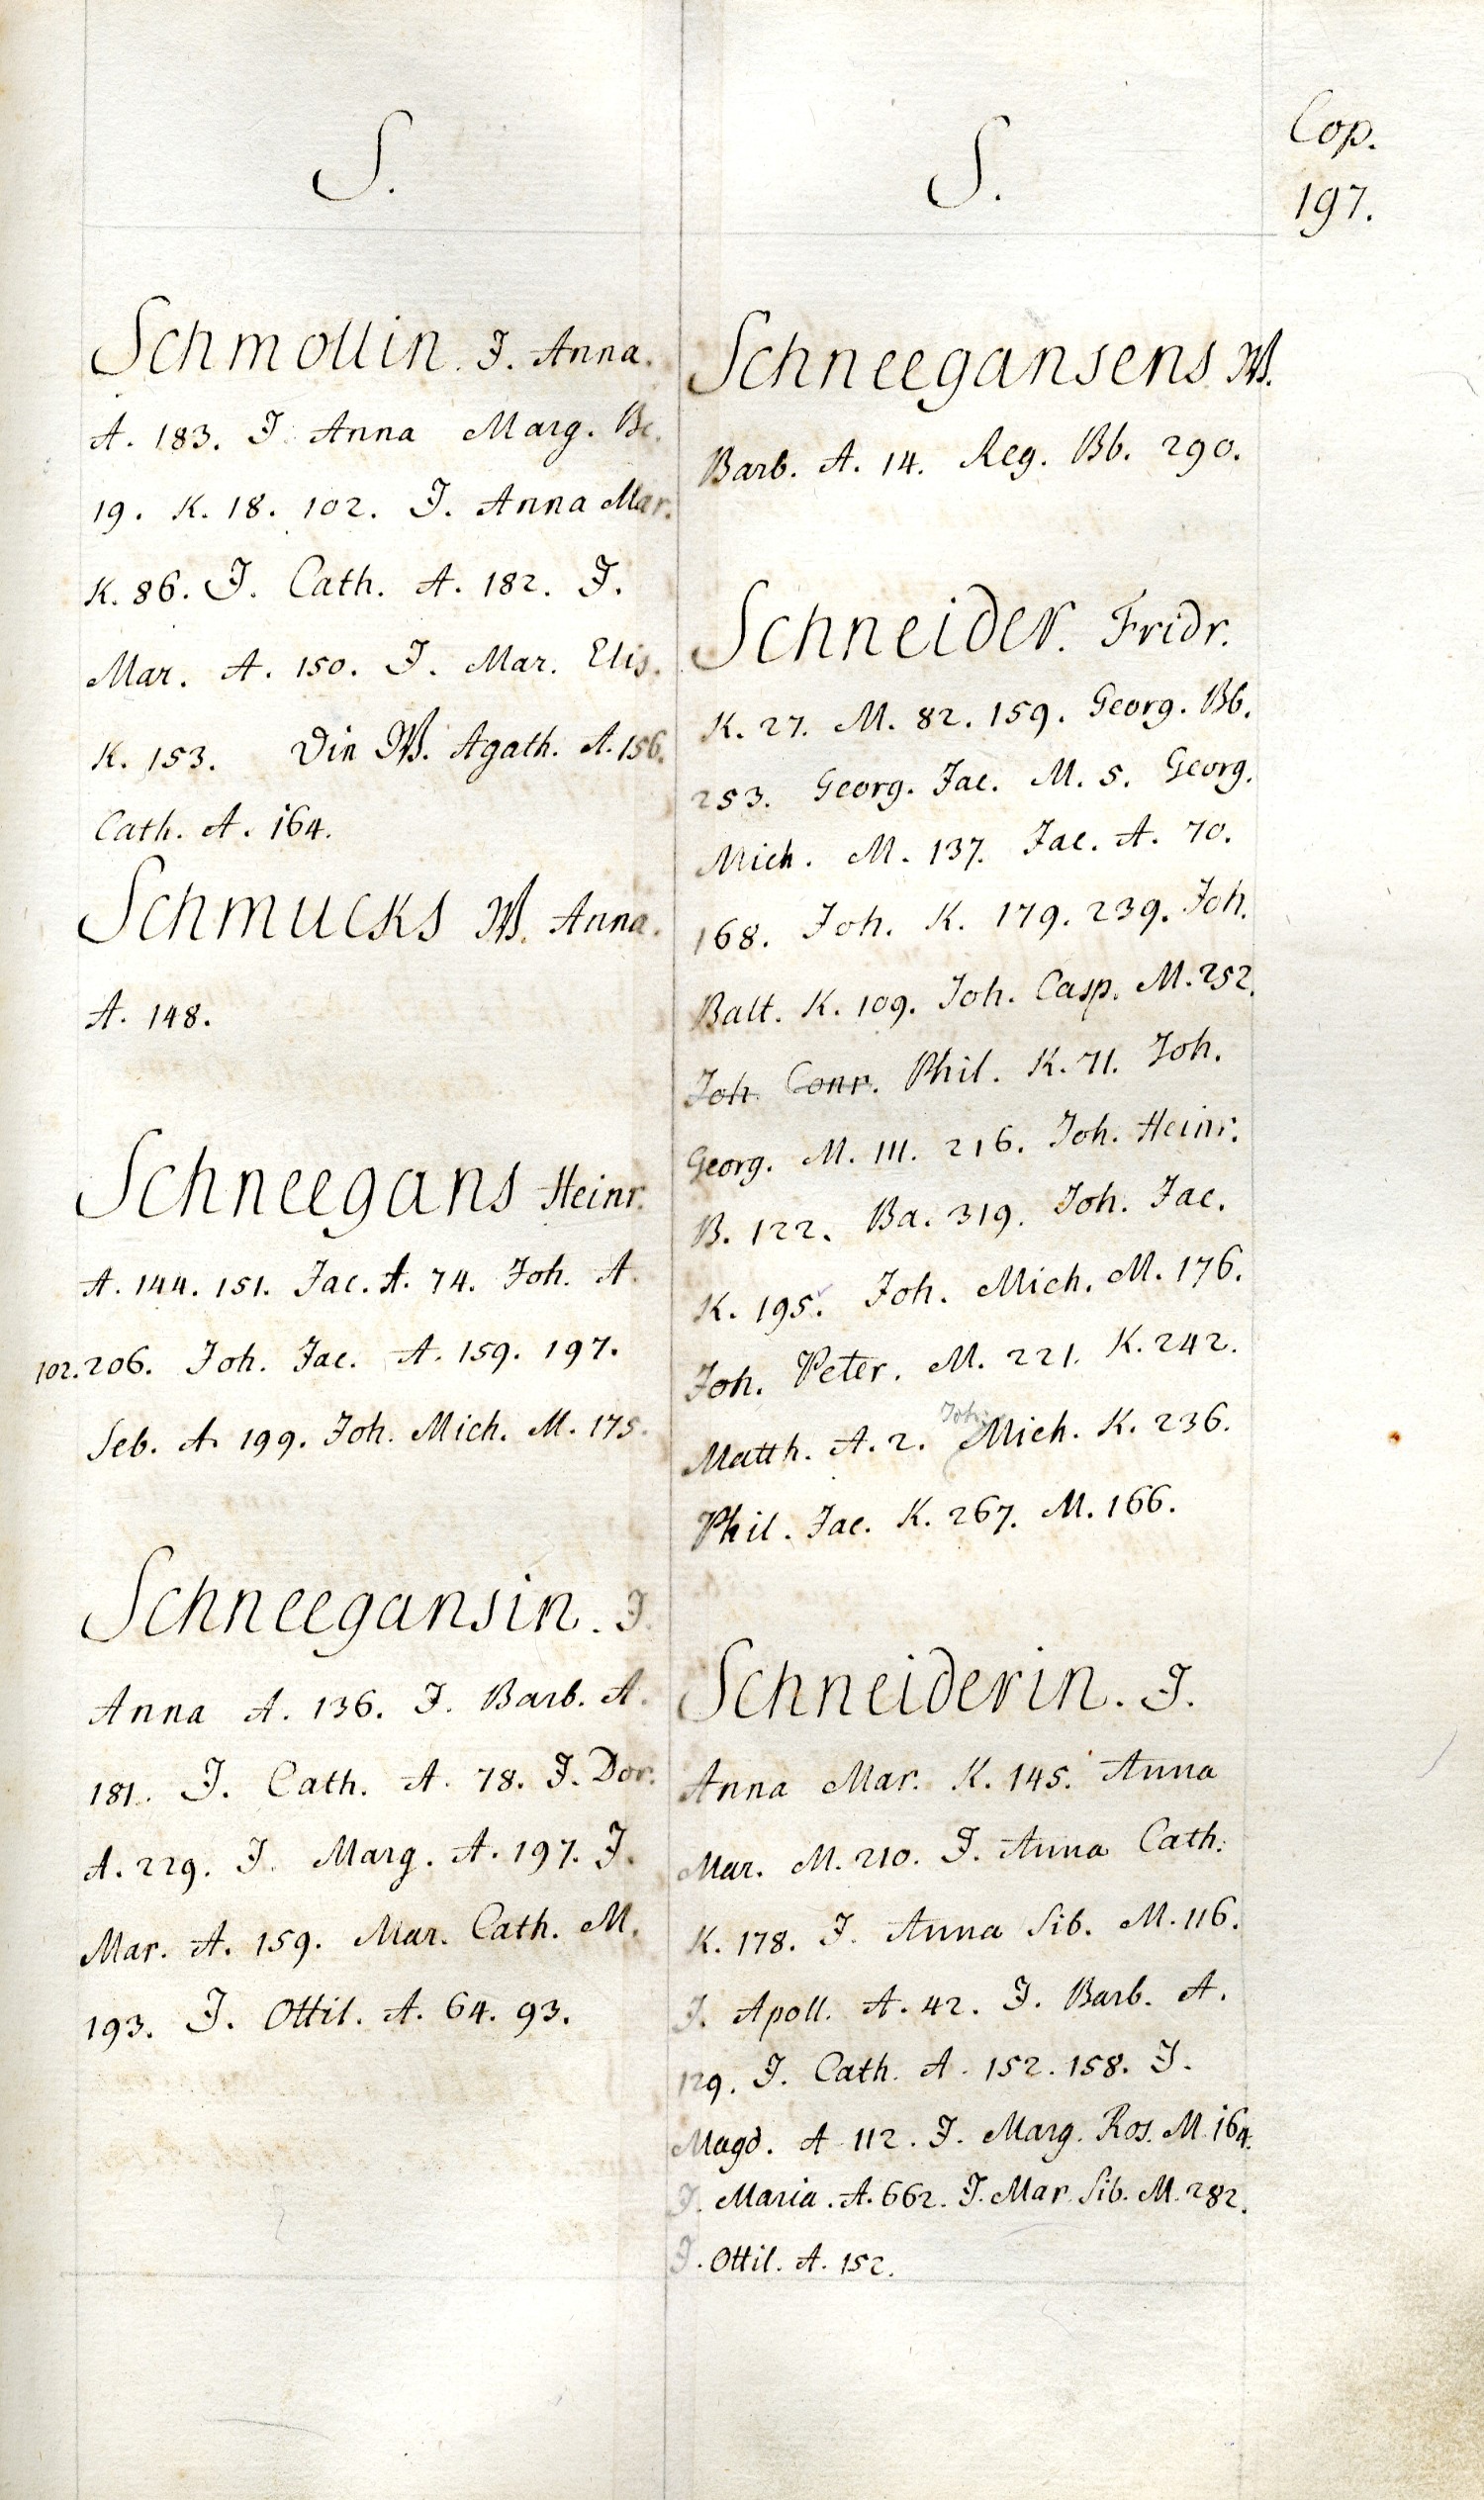 S.
Schmollin. J. Anna.
A. 183. J. Anna Marg. Bc.
19. K. 18. 102. J. Anna Mar.
K. 86. J. Cath. A. 182. J.
Mar. A. 150. J. Mar. Elis.
K. 153. Din W. Agath. A. 156.
Cath. A. 164.
Schmucks W. Anna.
A. 148.
Schneegans Heinr.
A. 144. 151. Jac. A. 74. Joh. A.
102. 206. Joh. Jac. A. 159. 197.
Seb. A. 199. Joh. Mich. M. 175.
Schneegansin. J.
Anna A. 136. J. Barb. A.
181. J. Cath. A. 78. J. Dor.
A. 229. J. Marg. A. 197. J.
Mar. A. 159. Mar. Cath. M.
193. J. Ottil. A. 64. 93.
S.
Schneegansens W.
Barb. A. 14. Reg. Bb. 290.
Schneider. Fridr.
K. 27. M. 82. 159. Georg. Bb.
253. Georg. Jac. M. 5. Georg.
Mich. M. 137. Jac. A. 70.
168. Joh. K. 179. 239. Joh.
Balt. K. 109. Joh. Casp. M. 252.
Joh. Conr. Phil. K. 71. Joh.
Georg. M. 111. 216. Joh. Heinr.
B. 122. Ba. 319. Joh. Jac.
K. 195. Joh. Mich. M. 176.
Joh. Peter. M. 221. K. 242.
Matth. A. 2. Joh. Mich. K. 236.
Phil. Jac. K. 267. M. 166.
Schneiderin. J.
Anna Mar. K. 145. Anna
Mar. M. 210. J. Anna Cath.
K. 178. J. Anna Sib. M. 116.
J. Apoll. A. 42. J. Barb. A.
129. J. Cath. A. 152. 158. J.
Magd. A 112. J. Marg. Ros. M. 164.
J. Maria. A. 662. J. Mar. Sib. M. 282.
J. Ottil. A. 152.
Cop.
197.